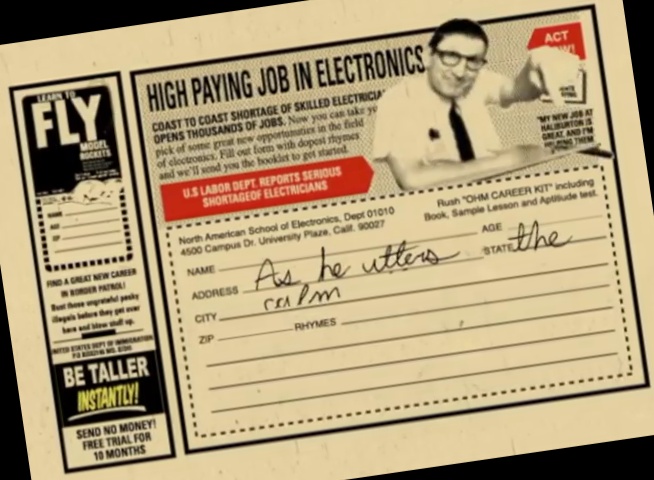 LEARN TO
FLY
MODEL
ROCKETS
NAME
AGE
ZIP
FIND A GREAT NEW CAREER
IN BORDER PATROL!
Bust those ungrateful pesky
illegals before they get over
here and blow stuff up.
UNITED STATES DEPT OF IMMIGRATION
BE TALLER
INSTANTLY!
SEND NO MONEY!
FREE TRIAL FOR
10 MONTHS
HIGH PAYING JOB IN ELECTRONICS
COAST TO COAST SHORTAGE OF SKILLED
OPENS THOUSANDS OF JOBS. Now you can take
pick of some great new opportunities in the field
of electronics. Fill out form with dopest rhymes
and we'll send you the booklet to get started.
U.S LABOR DEPT. REPORTS SERIOUS
SHORTAGEOF ELECTRICIANS
ACT
"MY NEW JOB AT
HALIBURTON IS
GREAT, AND I'M
THEM
North American School of Electronics, Dept 01010
4500 Campus Dr. University Plaze, Calif. 90027
Rush "OHM CAREER KIT" including
Book, Sample Lesson and Aptitude test.
NAME
AGE
ADDRESS As he utters
STATE the
CITY calm
ZIP
RHYMES